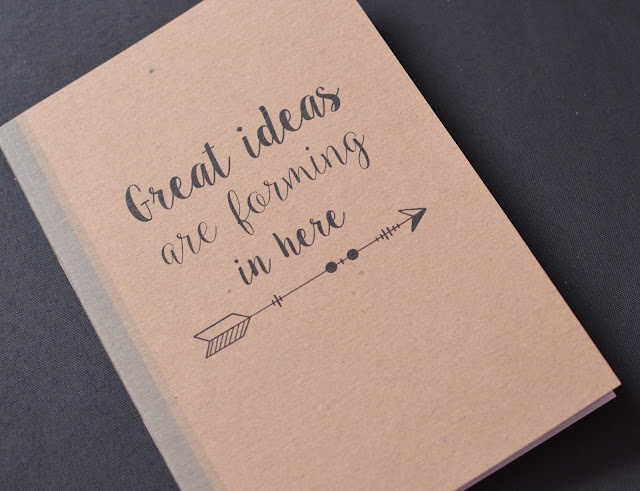 Great ideas
are forming
in here